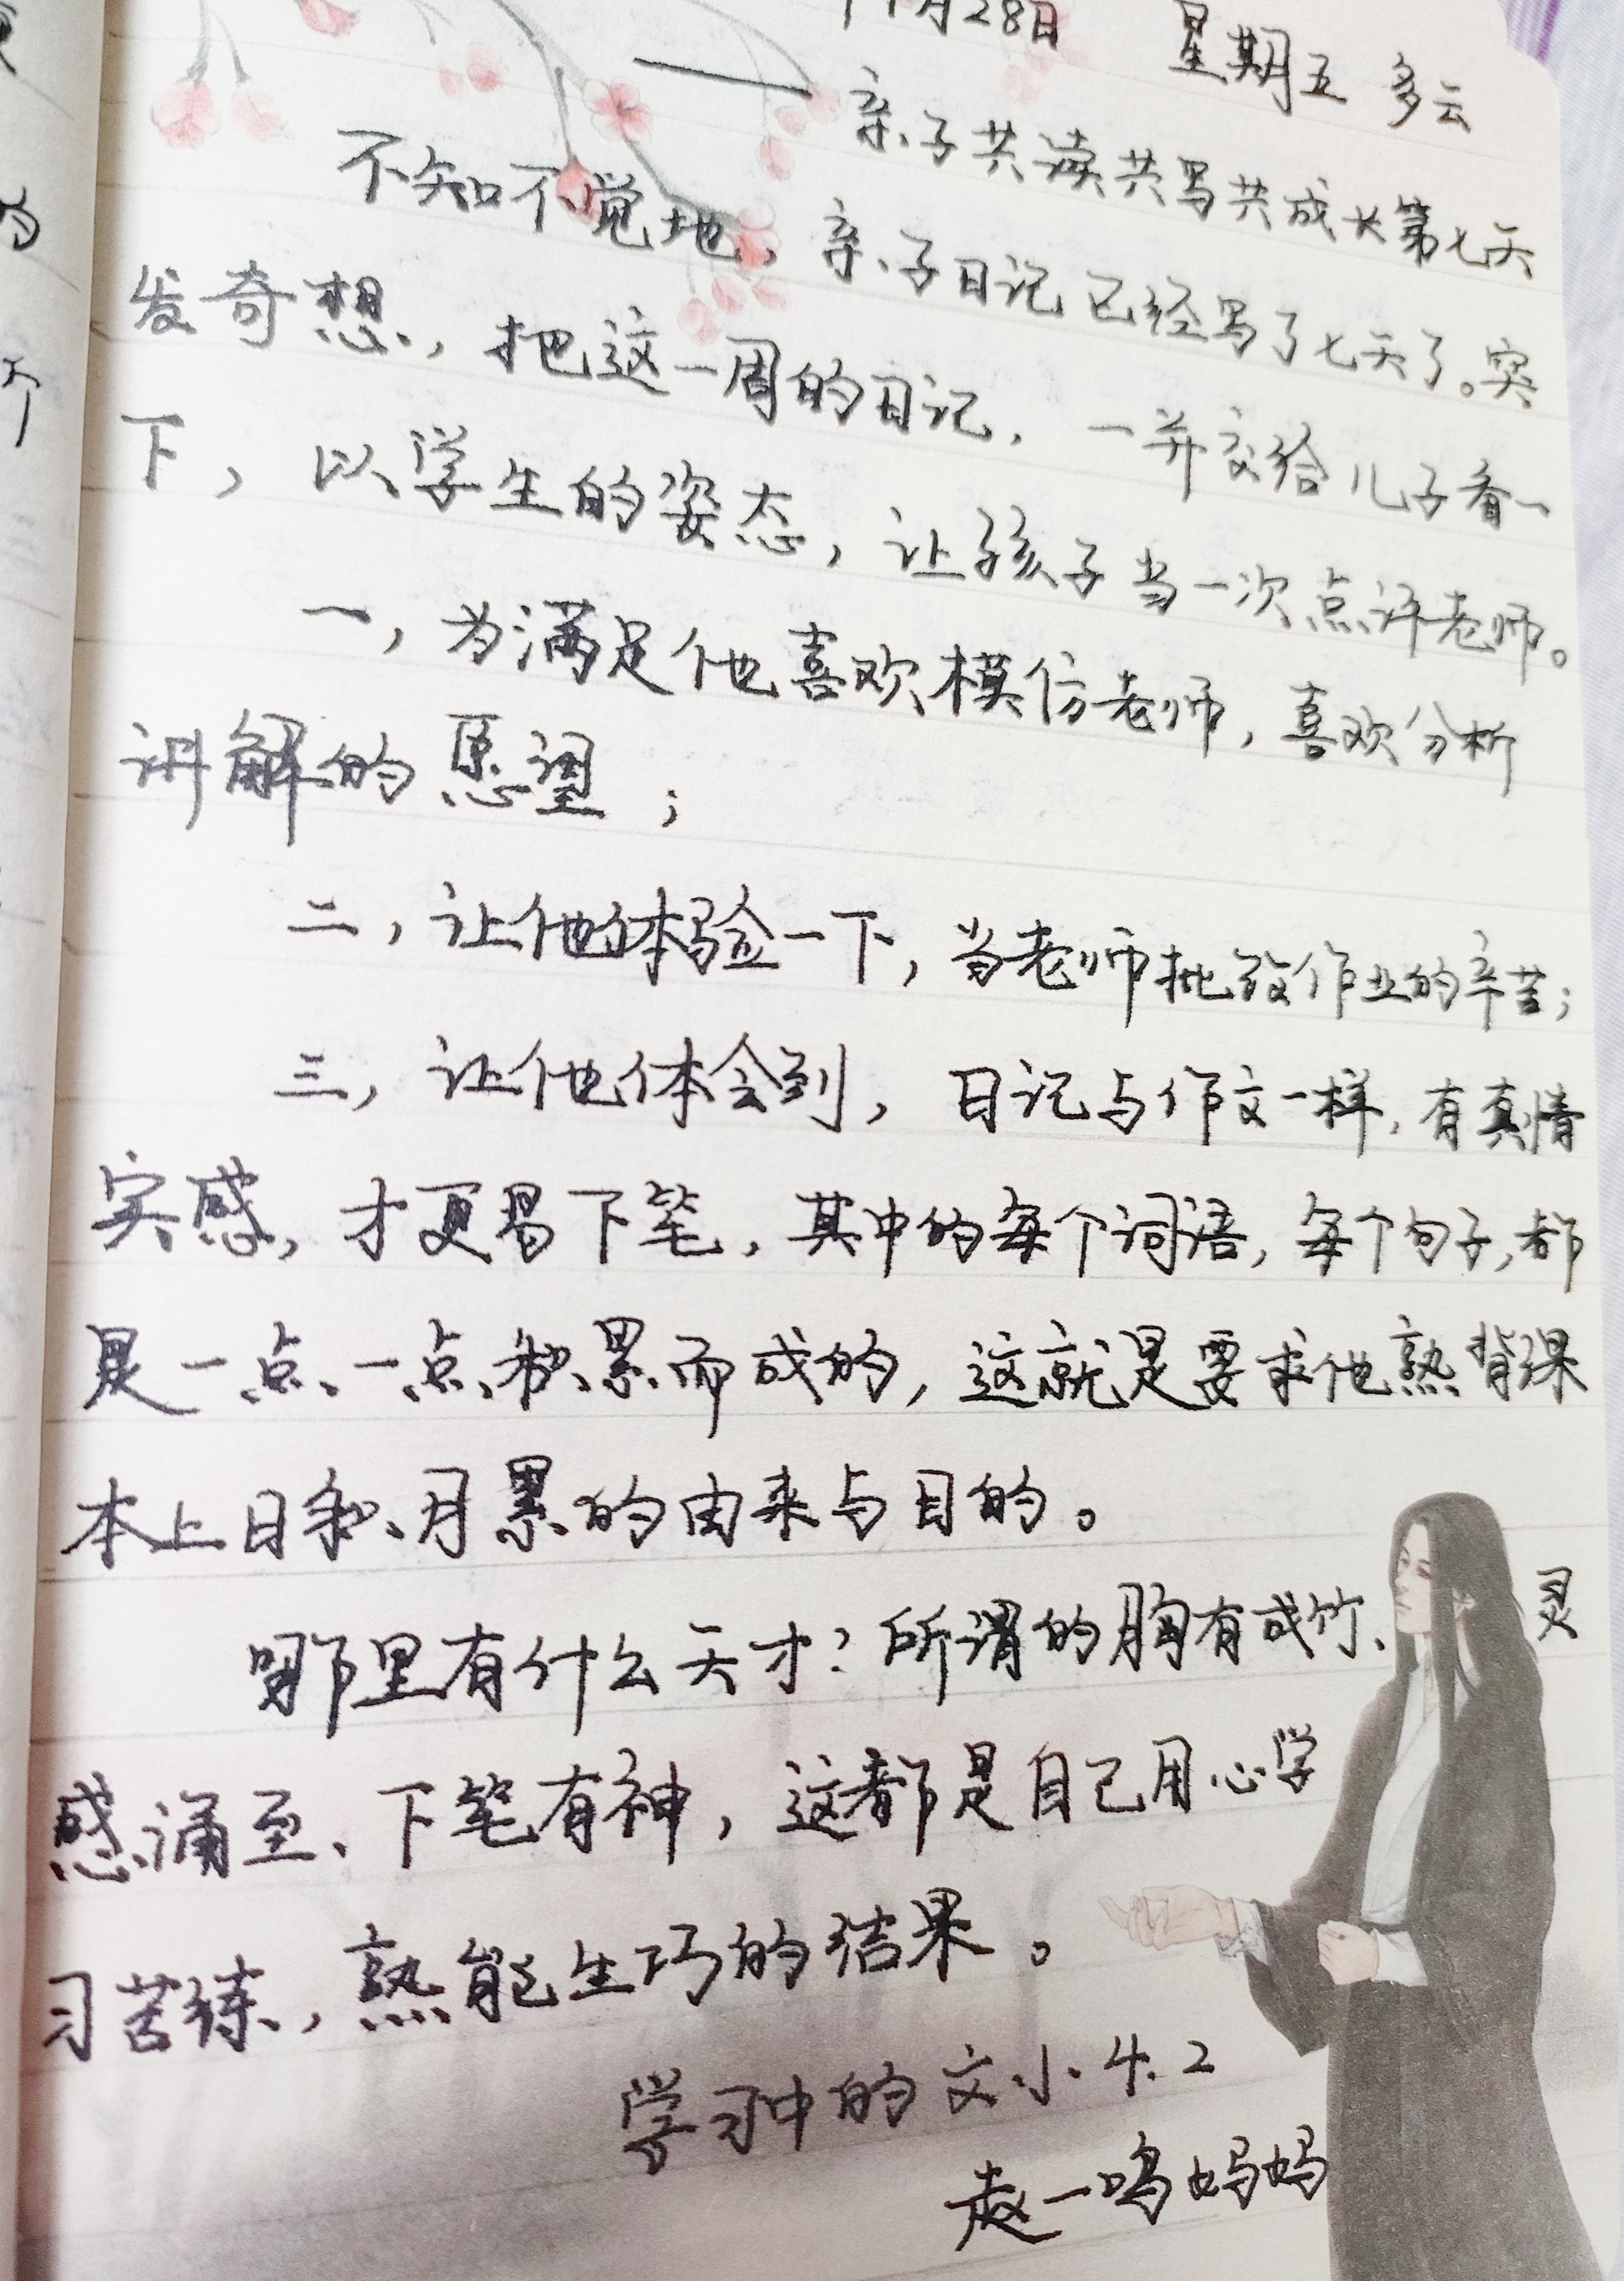 11月28日 星期五 多云
——亲子共读共写共成长第七天
不知不觉地，亲子日记已经写了七天了。突
发奇想，把这一周的日记，一并交给儿子看一
下，以学生的姿态，让孩子当一次点评老师。
一，为满足他喜欢模仿老师，喜欢分析
讲解的愿望；
二，让他体验一下，当老师批改作业的辛苦；
三，让他体会到，日记与作文一样，有真情
实感，才更易下笔，其中的每个词语，每个句子，都
是一点一点积累而成的，这就是要求他熟背课
本上日积月累的由来与目的。
哪里有什么天才？所谓的胸有成竹、灵
感涌至、下笔有神，这都是自己用心学
习苦练，熟能生巧的结果。
学习中的文小.4.2
赵一鸣妈妈